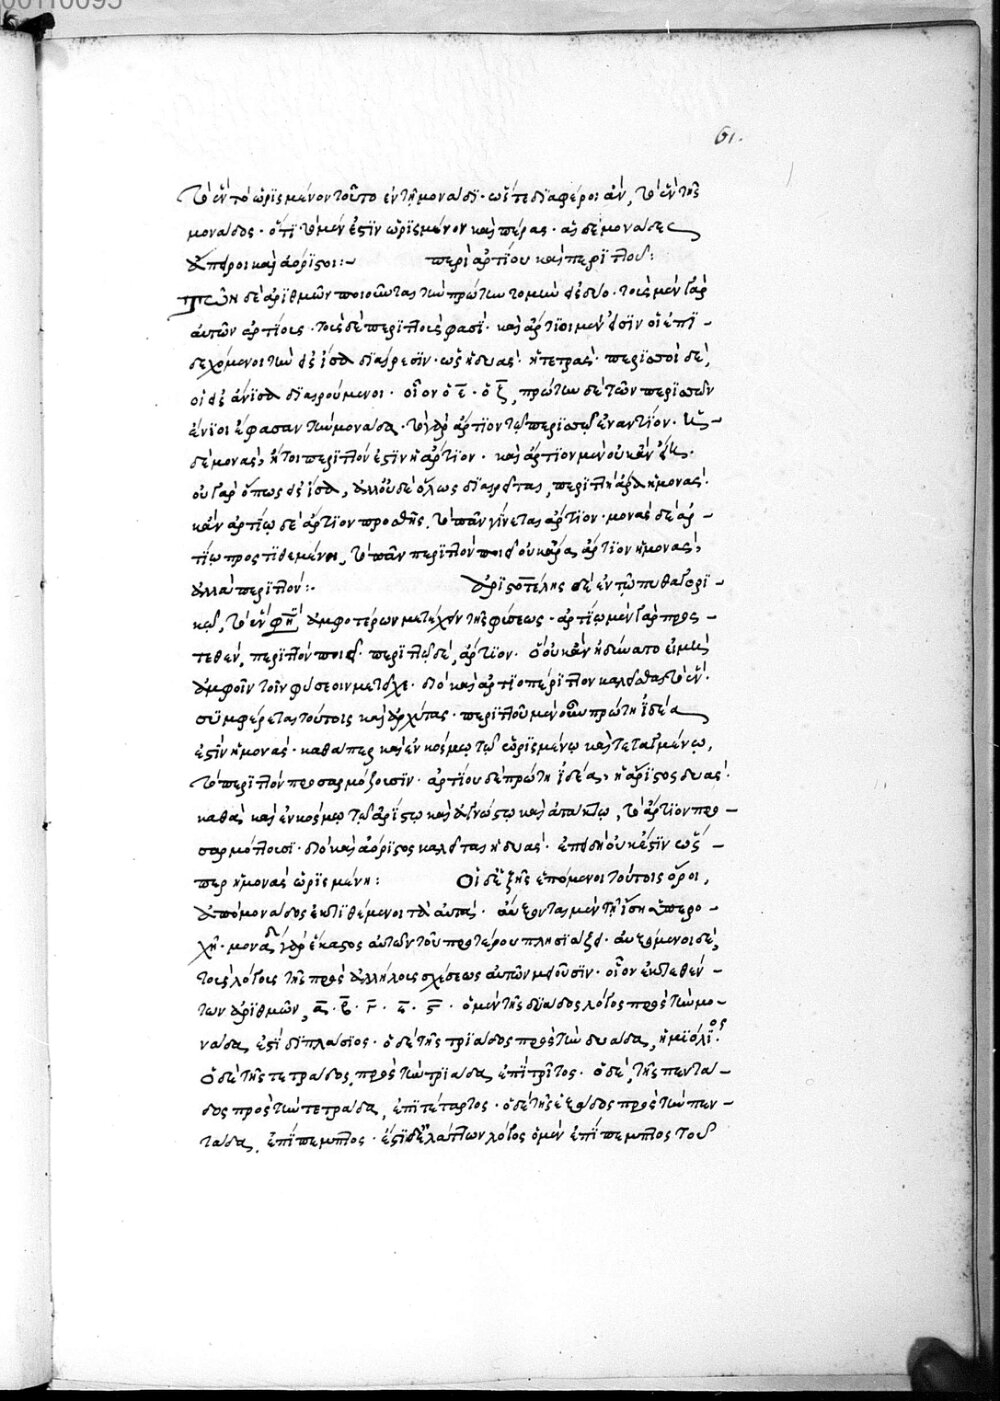 00110095
61.
τὸ ἓν τὸ ὡρισμένον τοῦτο ἐν τῇ μονάδι· ὥστε διαφέροι ἂν, τὸ ἓν τῆς
μονάδος· ὅτι τὸ μὲν ἐστὶν ὡρισμένον καὶ πέρας· αἱ δὲ μονάδες
ἄπειροι καὶ ἀόριστοι:~ περὶ ἀρτίου καὶ περιττοῦ:
Τῶν δὲ ἀριθμῶν ποιοῦνται τὴν πρώτην τομὴν εἰς δύο· τοὺς μὲν γὰρ
αὐτῶν ἀρτίους· τοὺς δὲ περιττοὺς φασί· καὶ ἄρτιοι μέν εἰσιν οἱ ἐπι-
δεχόμενοι τὴν εἰς ἴσα διαίρεσιν· ὡς ἡ δυάς· ἡ τετράς· περισσοὶ δὲ,
οἱ εἰς ἄνισα διαιρούμενοι· οἷον ὁ ε̅· ὁ ζ̅, πρώτην δὲ τῶν περισσῶν
ἔνιοι ἔφασαν τὴν μονάδα· τὸ γὰρ ἄρτιον τῷ περισσῷ ἐναντίον· ἡ
δὲ μονὰς, ἤτοι περιττόν ἐστιν ἢ ἄρτιον· καὶ ἄρτιον μὲν οὐκ ἂν εἴη·
οὐ γὰρ ὅπως εἰς ἴσα, ἀλλ' οὐδὲ ὅλως διαιρεῖται, περιττὴ ἄρα ἡ μονάς·
κἂν ἀρτίῳ δὲ ἄρτιον προσθῇς, τὸ πᾶν γίνεται ἄρτιον· μονὰς δὲ ἀρ-
τίῳ προστιθεμένη, τὸ πᾶν περιττὸν ποιεῖ οὐκ ἄρα ἄρτιον ἡ μονὰς,
ἀλλὰ περιττόν:· ἀριστοτέλης δὲ ἐν τῷ πυθαγορι-
κῷ, τὸ ἕν φησὶ ἀμφοτέρων μετέχειν τῆς φύσεως· ἀρτίῳ μὲν γὰρ προσ-
τεθὲν, περιττὸν ποιεῖ· περιττῷ δὲ, ἄρτιον· ὃ οὐκ ἂν ἠδύνατο εἰ μὴ
ἀμφοῖν τοῖν φύσεοιν μετεῖχε· διὸ καὶ ἀρτιοπέριττον καλεῖσθαι τὸ ἕν·
συμφέρεται τούτοις καὶ ἀρχύτας· περιττοῦ μὲν οὖν πρώτη ἰδέα
ἐστὶν ἡ μονάς· καθάπερ καὶ ἐν κόσμῳ τῷ ὡρισμένῳ καὶ τεταγμένῳ,
τὸ περιττὸν προσαρμόζουσιν· ἀρτίου δὲ πρώτη ἰδέα, ἡ ἀόριστος δυάς·
καθὰ καὶ ἐν κόσμῳ τῷ ἀορίστῳ καὶ ἀγνώστῳ καὶ ἀτάκτῳ, τὸ ἄρτιον προ-
σαρμόττουσι· διὸ καὶ ἀόριστος καλεῖται ἡ δυάς· ἐπειδὴ οὐκ ἔστιν ὥσ-
περ ἡ μονὰς ὡρισμένη: Οἱ δὲ ἑξῆς ἑπόμενοι τούτοις ὅροι,
ἀπὸ μονάδος ἐκτιθέμενοι κατὰ αὐτὰς· αὔξονται μὲν τῇ ἴσῃ ὑπερο-
χῇ· μονάδι γὰρ ἕκαστος αὐτῶν τοῦ προτέρου πλησιάζει· αὐξόμενοι δὲ,
τοὺς λόγους τῆς πρὸς ἀλλήλους σχέσεως αὐτῶν μειοῦσιν· οἷον ἐκτεθέν-
των ἀριθμῶν, α̅· β̅· γ̅· δ̅· ε̅· ὁ μὲν τῆς δυάδος λόγος πρὸς τὴν μο-
νάδα ἐστὶ διπλάσιος· ὁ δὲ τῆς τριάδος πρὸς τὴν δυάδα, ἡμιόλιος·
ὁ δὲ τῆς τετράδος, πρὸς τὴν τριάδα ἐπίτριτος· ὁ δὲ, τῆς πεντά-
δος πρὸς τὴν τετράδα, ἐπιτέταρτος· ὁ δὲ τῆς ἑξάδος πρὸς τὴν πεν-
τάδα, ἐπίπεμπτος· ἔστι δὲ ἐλάττων λόγος ὁ μὲν ἐπίπεμπτος τοῦ